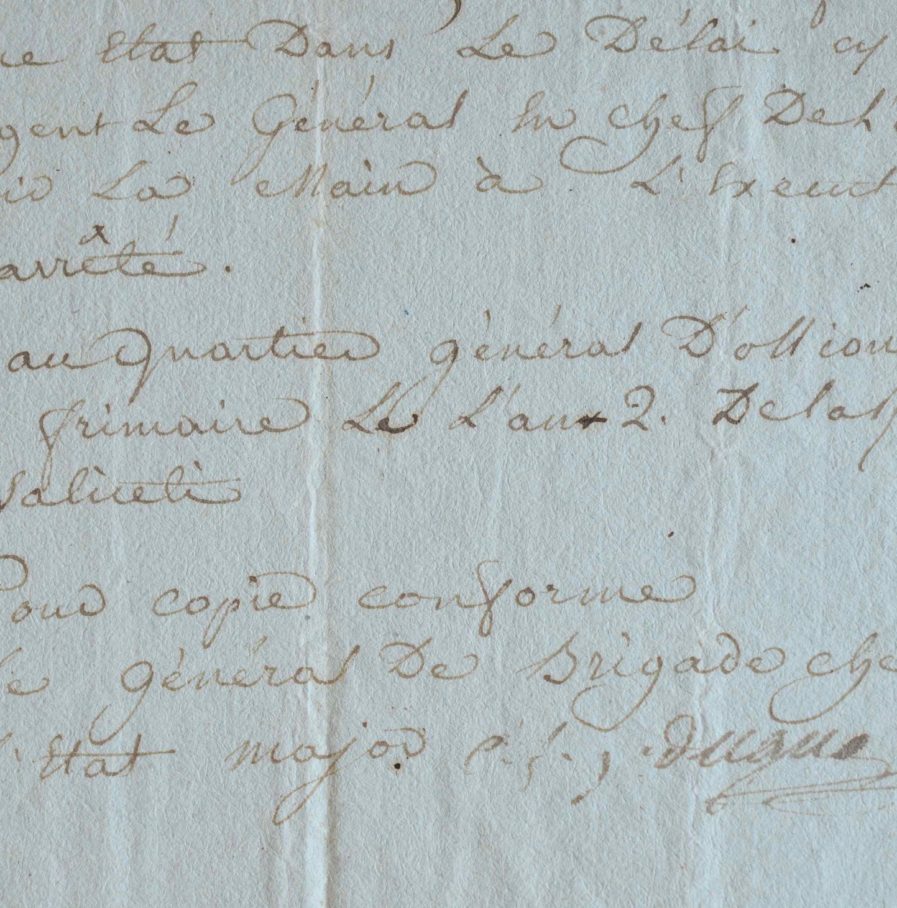 ue Etat Dans Le Délai cy
gent Le Général En chef De L'
ir La Main à L'Execut
arrêté.
au Quartier général D'ollioul
frimaire Le L'an 2. De la
Saliceti
Pour copie conforme
Le général De Brigade che
L'Etat major Dugua